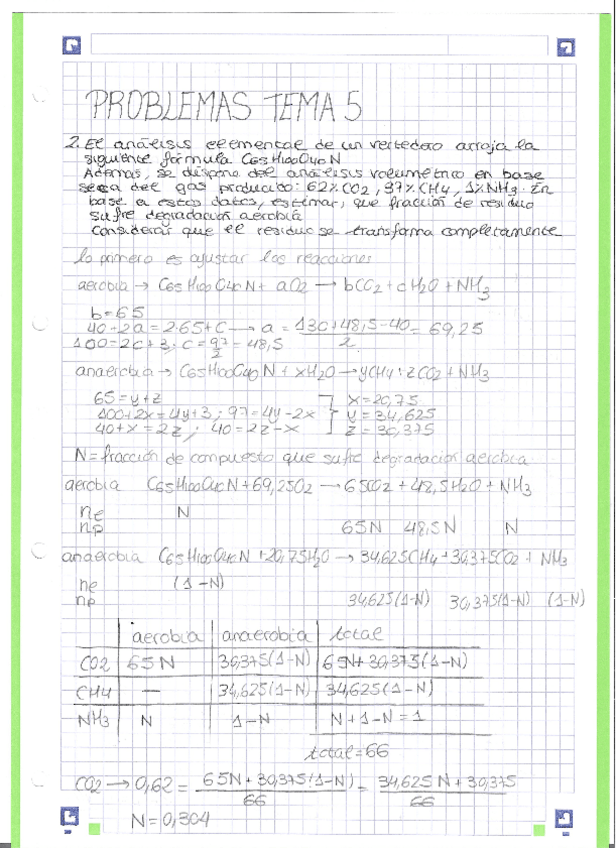 PROBLEMAS TEMA 5
2. El análisis elemental de un vertedero arroja la
siguiente fórmula C65H100O40N
Además, se dispone del análisis volumétrico en base
seca del gas producido: 62% CO2, 37% CH4, 1% NH3. En
base a estos datos, estimar, que fracción de residuo
sufre degradación aerobia
Considerar que el residuo se transforma completamente
lo primero es ajustar las reacciones
aerobia → C65H100O40N + aO2 → bCO2 + cH2O + NH3
b=65
40+2a = 2·65+c → a = 130+48,5-40/2 = 69,25
100=2c+3; c=97/2=48,5
anaerobia → C65H100O40N + xH2O → yCH4 + zCO2 + NH3
65=y+z x=20,75
100+2x=4y+3; 97=4y-2x y=34,625
40+x=2z; 40=2z-x z=30,375
N=fracción de compuesto que sufre degradación aerobia
aerobia C65H100O40N+69,25O2 → 65CO2+48,5H2O+NH3
ne N
np 65N 48,5N N
anaerobia C65H100O40N+20,75H2O → 34,625CH4+30,375CO2+NH3
ne (1-N)
np 34,625(1-N) 30,375(1-N) (1-N)
aerobia anaerobia total
CO2 65N 30,375(1-N) 65N+30,375(1-N)
CH4 — 34,625(1-N) 34,625(1-N)
NH3 N 1-N N+1-N=1
total=66
CO2 → 0,62 = 65N+30,375(1-N)/66 = 34,625N+30,375/66
N=0,304